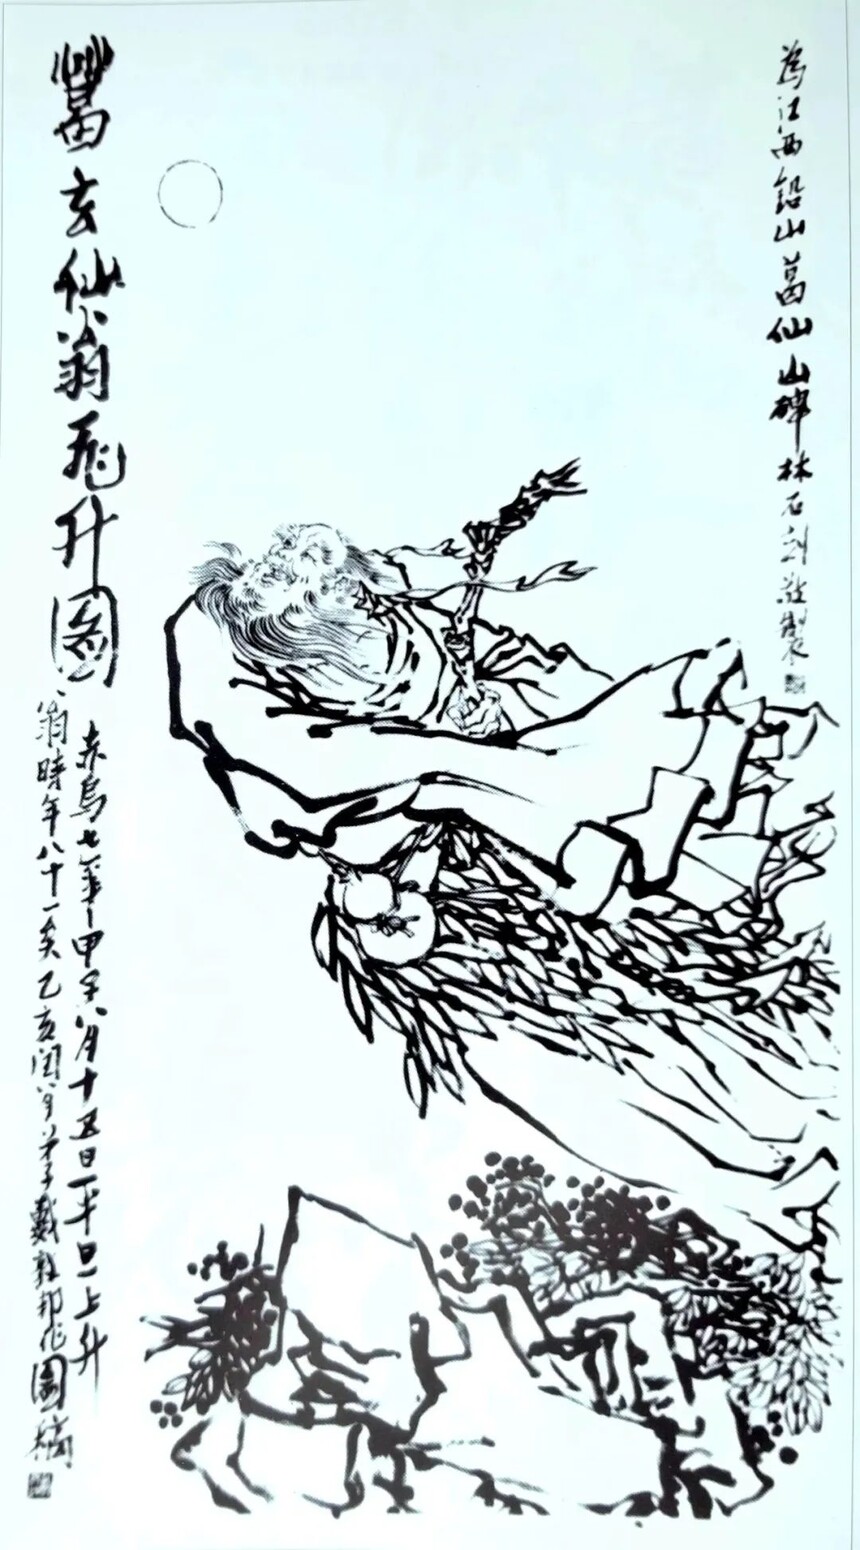 為江西铅山葛仙山碑林石刻敬製
葛玄仙翁飛升圖
赤烏七年甲子八月十五日平旦上升
翁時年八十一矣乙亥闰八月弟子戴敦邦作圖稿